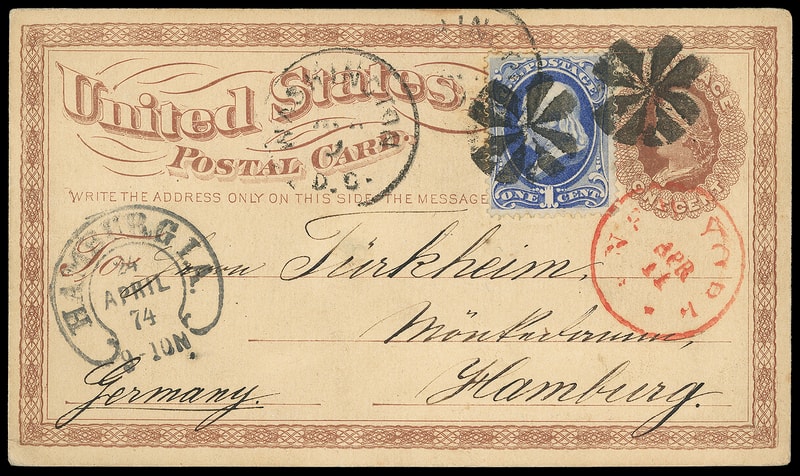 United States
POSTAL CARD.
WRITE THE ADDRESS ONLY ON THIS SIDE, THE MESSAGE
WASHINGTON
D.C.
POSTAGE
ONE 1 CENT
ONE CENT
NEW YORK
APR
11
HAMBURG I.A.
24
APRIL
74
9-10N.
To Herrn Türkheim,
Hamburg.
Germany.